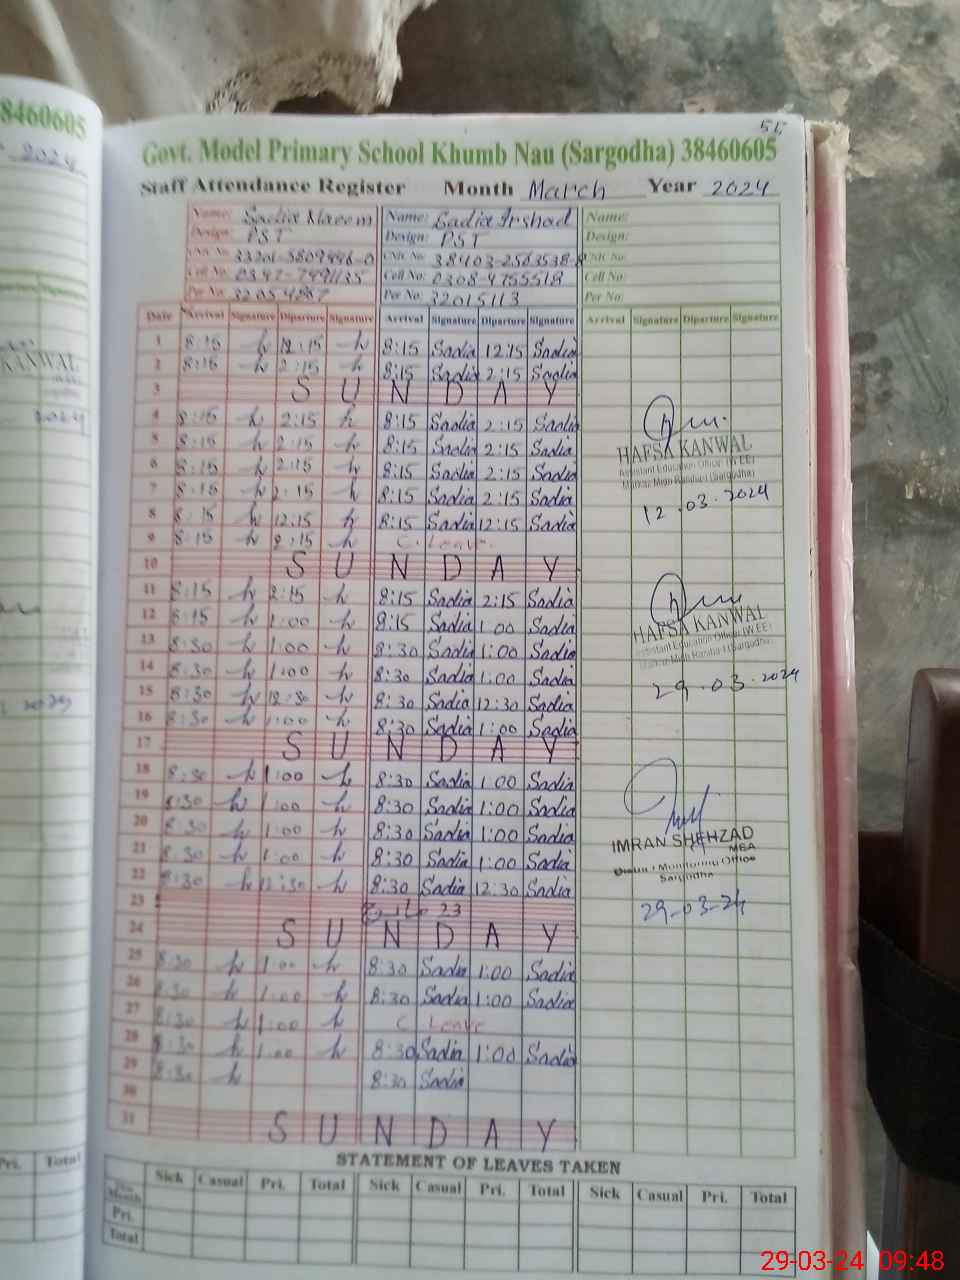 38460605
2024
51
Govt. Model Primary School Khumb Nau (Sargodha) 38460605
Staff Attendance Register Month March Year 2024
Name: Sadia Naeem Name: Sadia Irshad Name:
Design: PST Design: PST Design:
CNIC No: CNIC No: CNIC No:
Cell No: Cell No: 0308-4755518 Cell No:
Per No: Per No: 32015113 Per No:
Date Arrival Signature Diparture Signature Arrival Signature Diparture Signature Arrival Signature Diparture Signature
1 8:15 12:15 8:15 Sadia 12:15 Sadia
2 8:15 2:15 8:15 Sadia 2:15 Sadia
3 S U N D A Y
4 8:15 2:15 8:15 Sadia 2:15 Sadia
5 8:15 2:15 8:15 Sadia 2:15 Sadia
HAFSA KANWAL
Assistant Education Officer (W.EE)
6 8:15 2:15 8:15 Sadia 2:15 Sadia
7 8:15 2:15 8:15 Sadia 2:15 Sadia
12.03.2024
8 8:15 12.15 8:15 Sadia 12:15 Sadia
9 8:15 2:15 C. Leave.
10 S U N D A Y
11 8:15 2:15 8:15 Sadia 2:15 Sadia
12 8:15 1:00 8:15 Sadia 1:00 Sadia
HAFSA KANWAL
Assistant Education Officer (W.EE)
13 8:30 1:00 8:30 Sadia 1:00 Sadia
14 8:30 1:00 8:30 Sadia 1:00 Sadia
29.03.2024
15 8:30 12:30 8:30 Sadia 12:30 Sadia
16 8:30 1:00 8:30 Sadia 1:00 Sadia
17 S U N D A Y
18 8:30 1:00 8:30 Sadia 1:00 Sadia
19 8:30 1:00 8:30 Sadia 1:00 Sadia
20 8:30 1:00 8:30 Sadia 1:00 Sadia
IMRAN SHEHZAD
MEA
21 8:30 1:00 8:30 Sadia 1:00 Sadia
Sargodha
22 8:30 12:30 8:30 Sadia 12:30 Sadia
29-03-24
23 23
24 S U N D A Y
25 8:30 1:00 8:30 Sadia 1:00 Sadia
26 8:30 1:00 8:30 Sadia 1:00 Sadia
27 8:30 1:00 C Leave
28 8:30 1:00 8:30 Sadia 1:00 Sadia
29 8:30 8:30 Sadia
30
31 S U N D A Y
STATEMENT OF LEAVES TAKEN
Pri. Total Sick Casual Pri. Total Sick Casual Pri. Total Sick Casual Pri. Total
This Month
Pri.
Total
29-03-24 09:48